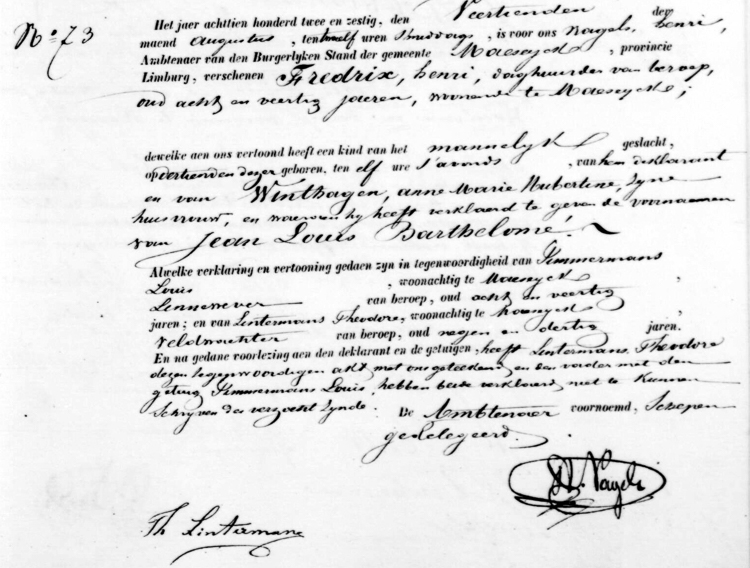 No 73
Het jaer achttien honderd twee en zestig, den Veertienden der
maend Augustus, ten twaelf uren s'middags, is voor ons Nagels, henri,
Ambtenaer van den Burgerlyken Stand der gemeente Maeseyck, provincie
Limburg, verschenen Fredrix, henri, daghuerder van beroep,
oud acht en veertig jaeren, woonende te Maeseyck;
dewelke aen ons vertoond heeft een kind van het mannelyk geslacht,
op dertienden dezer geboren, ten elf ure s'avonds, van hem deklarant
en van Winthagen, anne Marie Hubertine, zyne
huisvrouw, en waervan hy heeft verklaerd te geven de voornaemen
van Jean Louis Barthelomé!
Alwelke verklaring en vertooning gedaen zyn in tegenwoordigheid van Timmermans
Louis, woonachtig te Maeseyck,
Linnewever van beroep, oud acht en veertig
jaren; en van Lintermans Theodore, woonachtig te Maeseyck,
Veldwachter van beroep, oud negen en dertig jaren.
En na gedane voorlezing aen den deklarant en de getuigen, heeft Lintermans, Theodore
dezen tegenwoordigen akt met ons geteekend en den vader met den
getuig Timmermans Louis, hebben beide verklaerd niet te kunnen
Schryven des verzocht zynde. De Ambtenaer voornoemd, Schepen
gedelegeerd.
H. Nagels
Th Lintermans